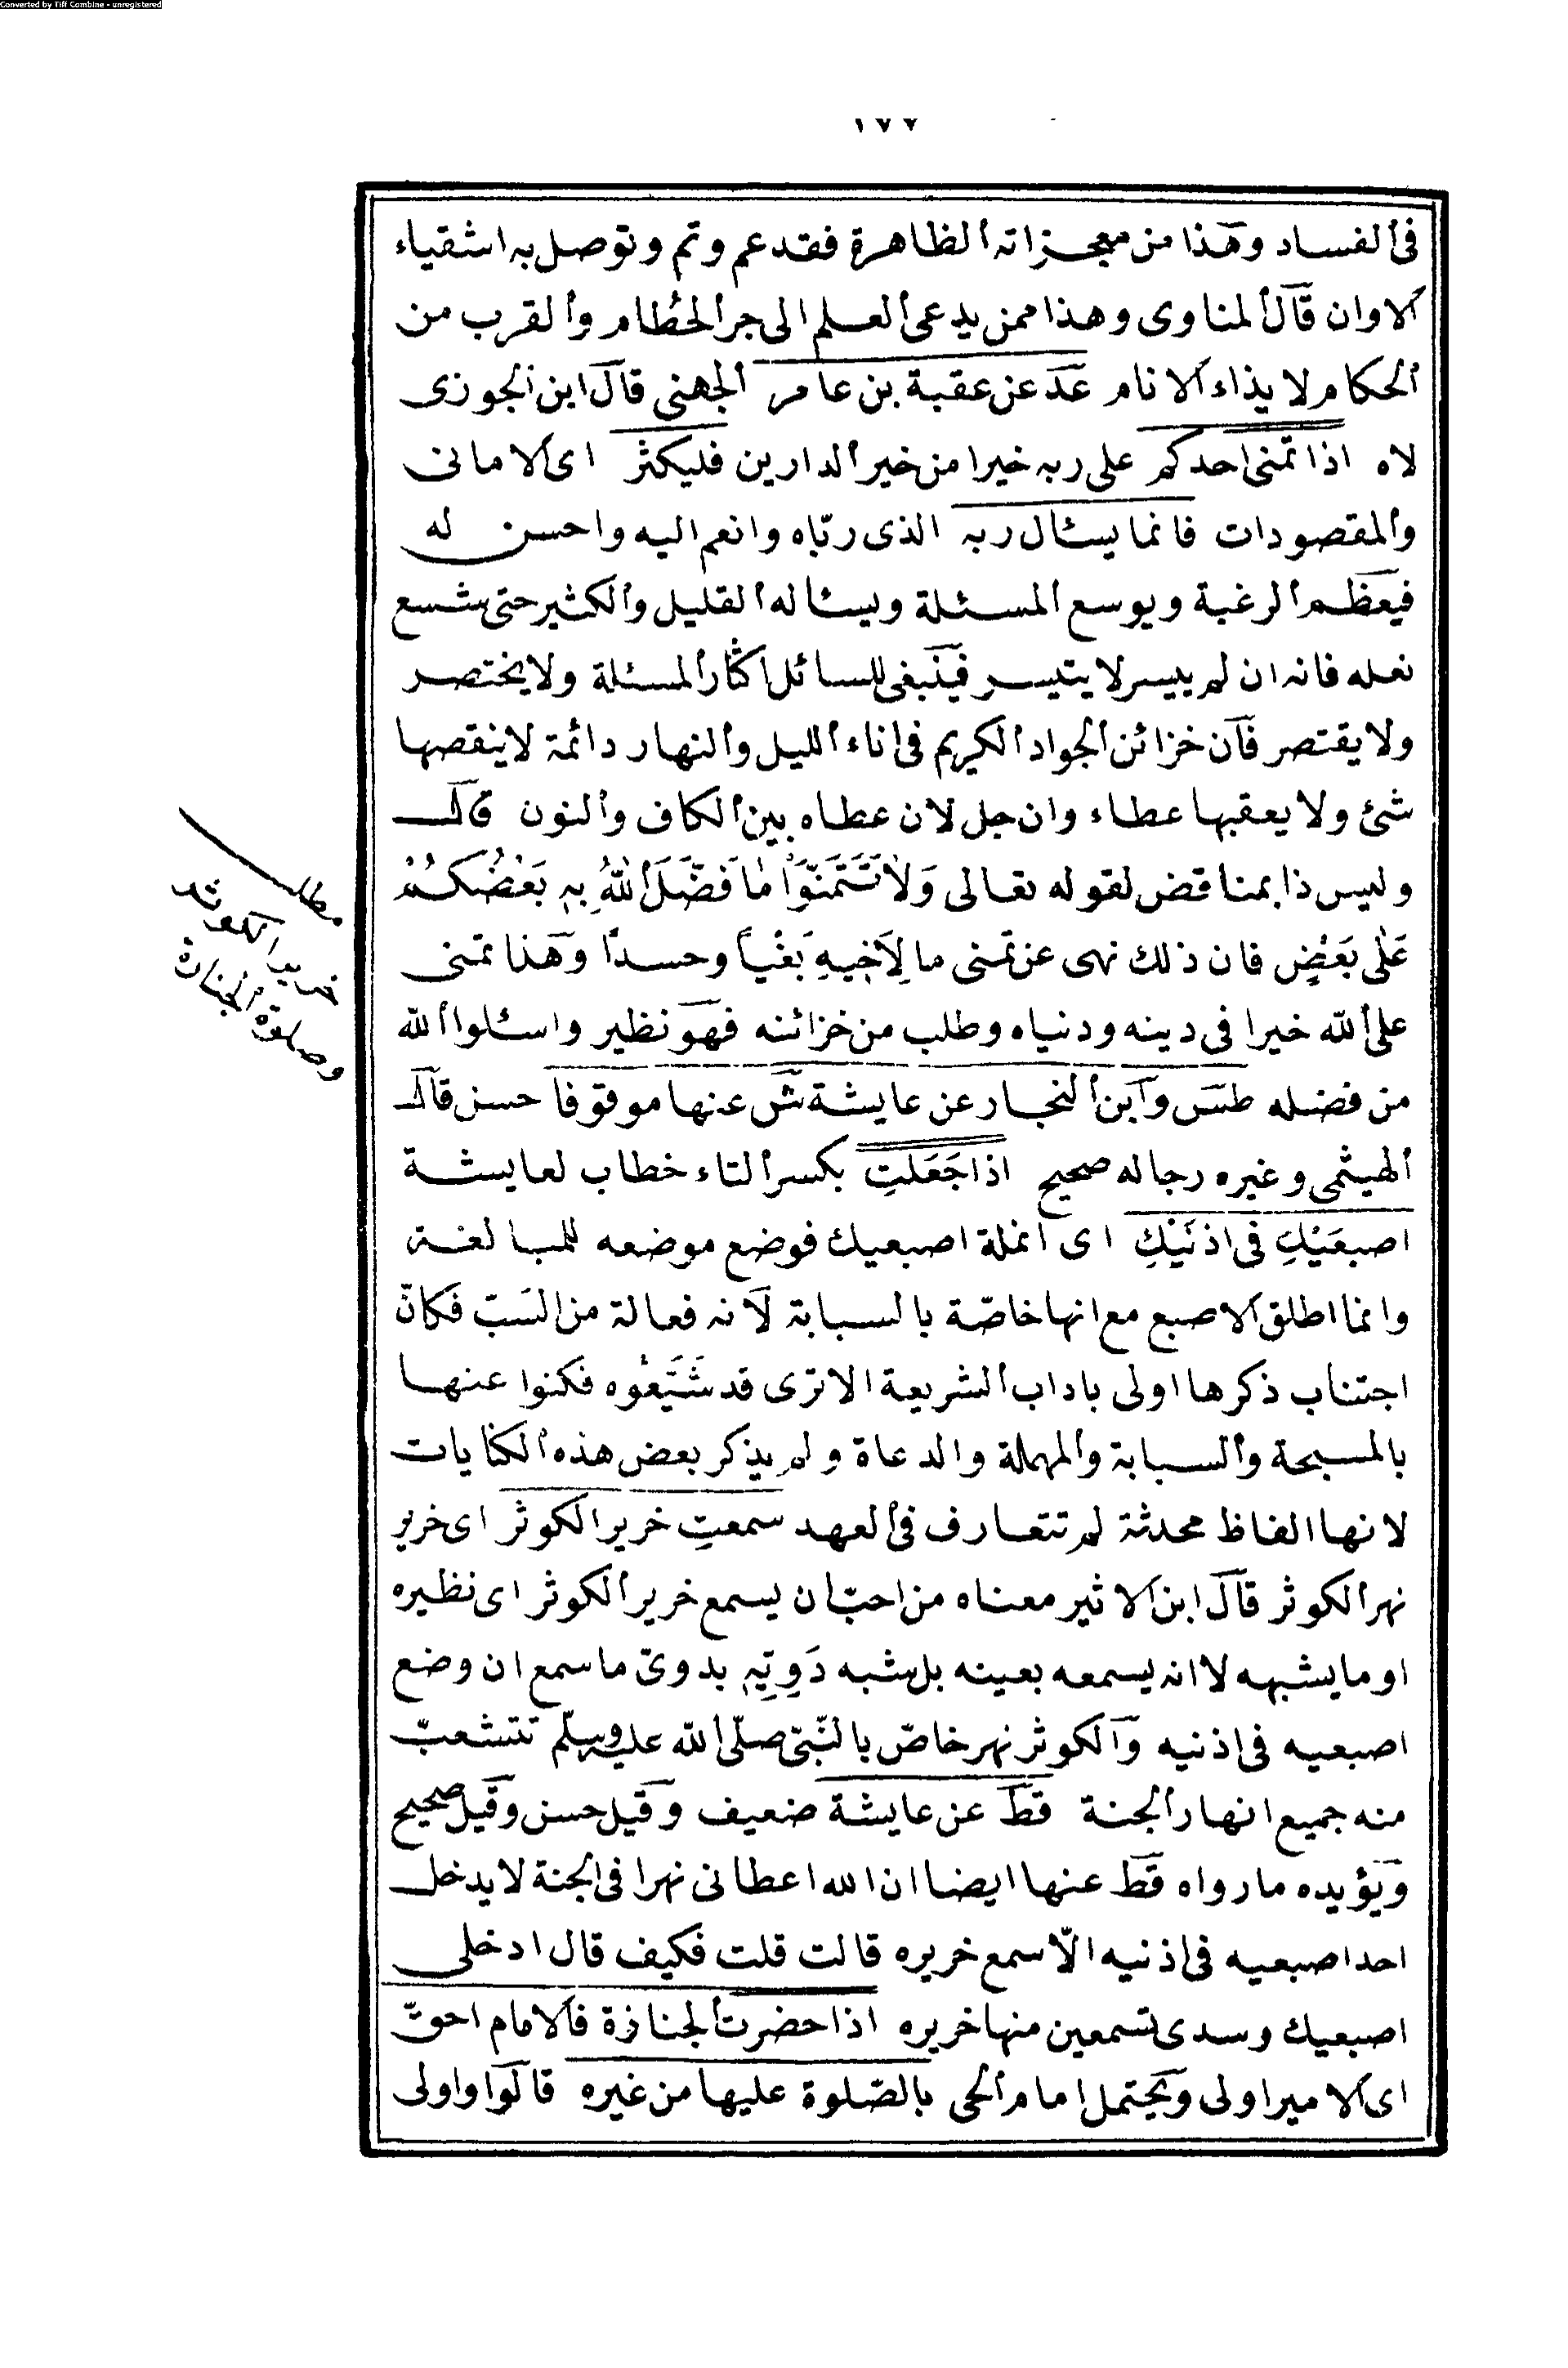 Converted by Tiff Combine - unregistered
١٧٧
فى الفساد وهذا من معجزاته الظاهرة فقد عم وتم وتوصل به اشقياء
الاوان قال المناوى وهذا ممن يدعى العلم الى جر الحُطام والقرب من
الحكام لا يذاء الانام عد عن عقبة بن عامر الجهنى قال ابن الجوزى
لاه اذا تمنى احدكم على ربه خيرا من خير الدارين فليكثر اى الامانى
والمقصودات فانما يسئال ربه الذى ربّاه وانعم اليه واحسن له
فيعظم الرغبة ويوسع المسئلة ويسئاله القليل والكثير حتى شسع
نعله فانه ان لم ييسر لا يتيسر فينبغى للسائل اكثار المسئلة ولا يختصر
ولا يقتصر فان خزائن الجواد الكريم فى اناء الليل والنهار دائمة لا ينقصها
شئ ولا يعقبها عطاء وان جل لان عطاه بين الكاف والنون قال
وليس ذا بمناقض لقوله تعالى وَلاَ تَتَمَنَّوْا مٰا فَضَّلَ اللّٰهُ بِهِ بَعْضُكُمْ
عَلٰى بَعْضٍ فان ذلك نهى عن تمنى ما لِاَخِيهِ بَغْياً وحسداً وهذا تمنى
على الله خيرا فى دينه ودنياه وطلب من خزائنه فهو نظير واسئلوا الله
من فضله طس وابن النجار عن عايشة ش عنها موقوفا حسن قال
الهيثمى وغيره رجاله صحيح اذا جَعَلتِ بكسر التاء خطاب لعايشة
اصبعَيْكِ فى اذنَيْكِ اى انملة اصبعيك فوضع موضعه للمبالغة
وانما اطلق الاصبع مع انها خاصّة بالسبابة لانه فعالة من السَبّ فكان
اجتناب ذكرها اولى باداب الشريعة الا ترى قد شَنَّعُوه فكنوا عنها
بالمسبحة والسبابة والمهملة والدعاة ولم يذكر بعض هذه الكنايات
لانها الفاظ محدثة لم تتعارف فى العهد سمعتِ خرير الكوثر اى خرير
نهر الكوثر قال ابن الاثير معناه من احبّ ان يسمع خرير الكوثر اى نظيره
او ما يشبهه لا انه يسمعه بعينه بل شبه دَوِيِّهِ بدوىّ ما سمع ان وضع
اصبعيه فى اذنيه والكوثر نهر خاصّ بالنّبىّ صلّى الله عليه وسلّم تتشعبّ
منه جميع انهار الجنة قط عن عايشة ضعيف وقيل حسن وقيل صحيح
ويؤيده ما رواه قط عنها ايضا ان الله اعطانى نهرا فى الجنة لا يدخل
احد اصبعيه فى اذنيه الّا سمع خريره قالت قلت فكيف قال ادخلى
اصبعيك وسدى تسمعين منها خريره اذا حضرت الجنازة فالامام احقّ
اى الامير اولى ويحتمل امام الحى بالصّلوة عليها من غيره قالوا واولى
مطلب
خرير الكوثر
وصلوة الجنازة